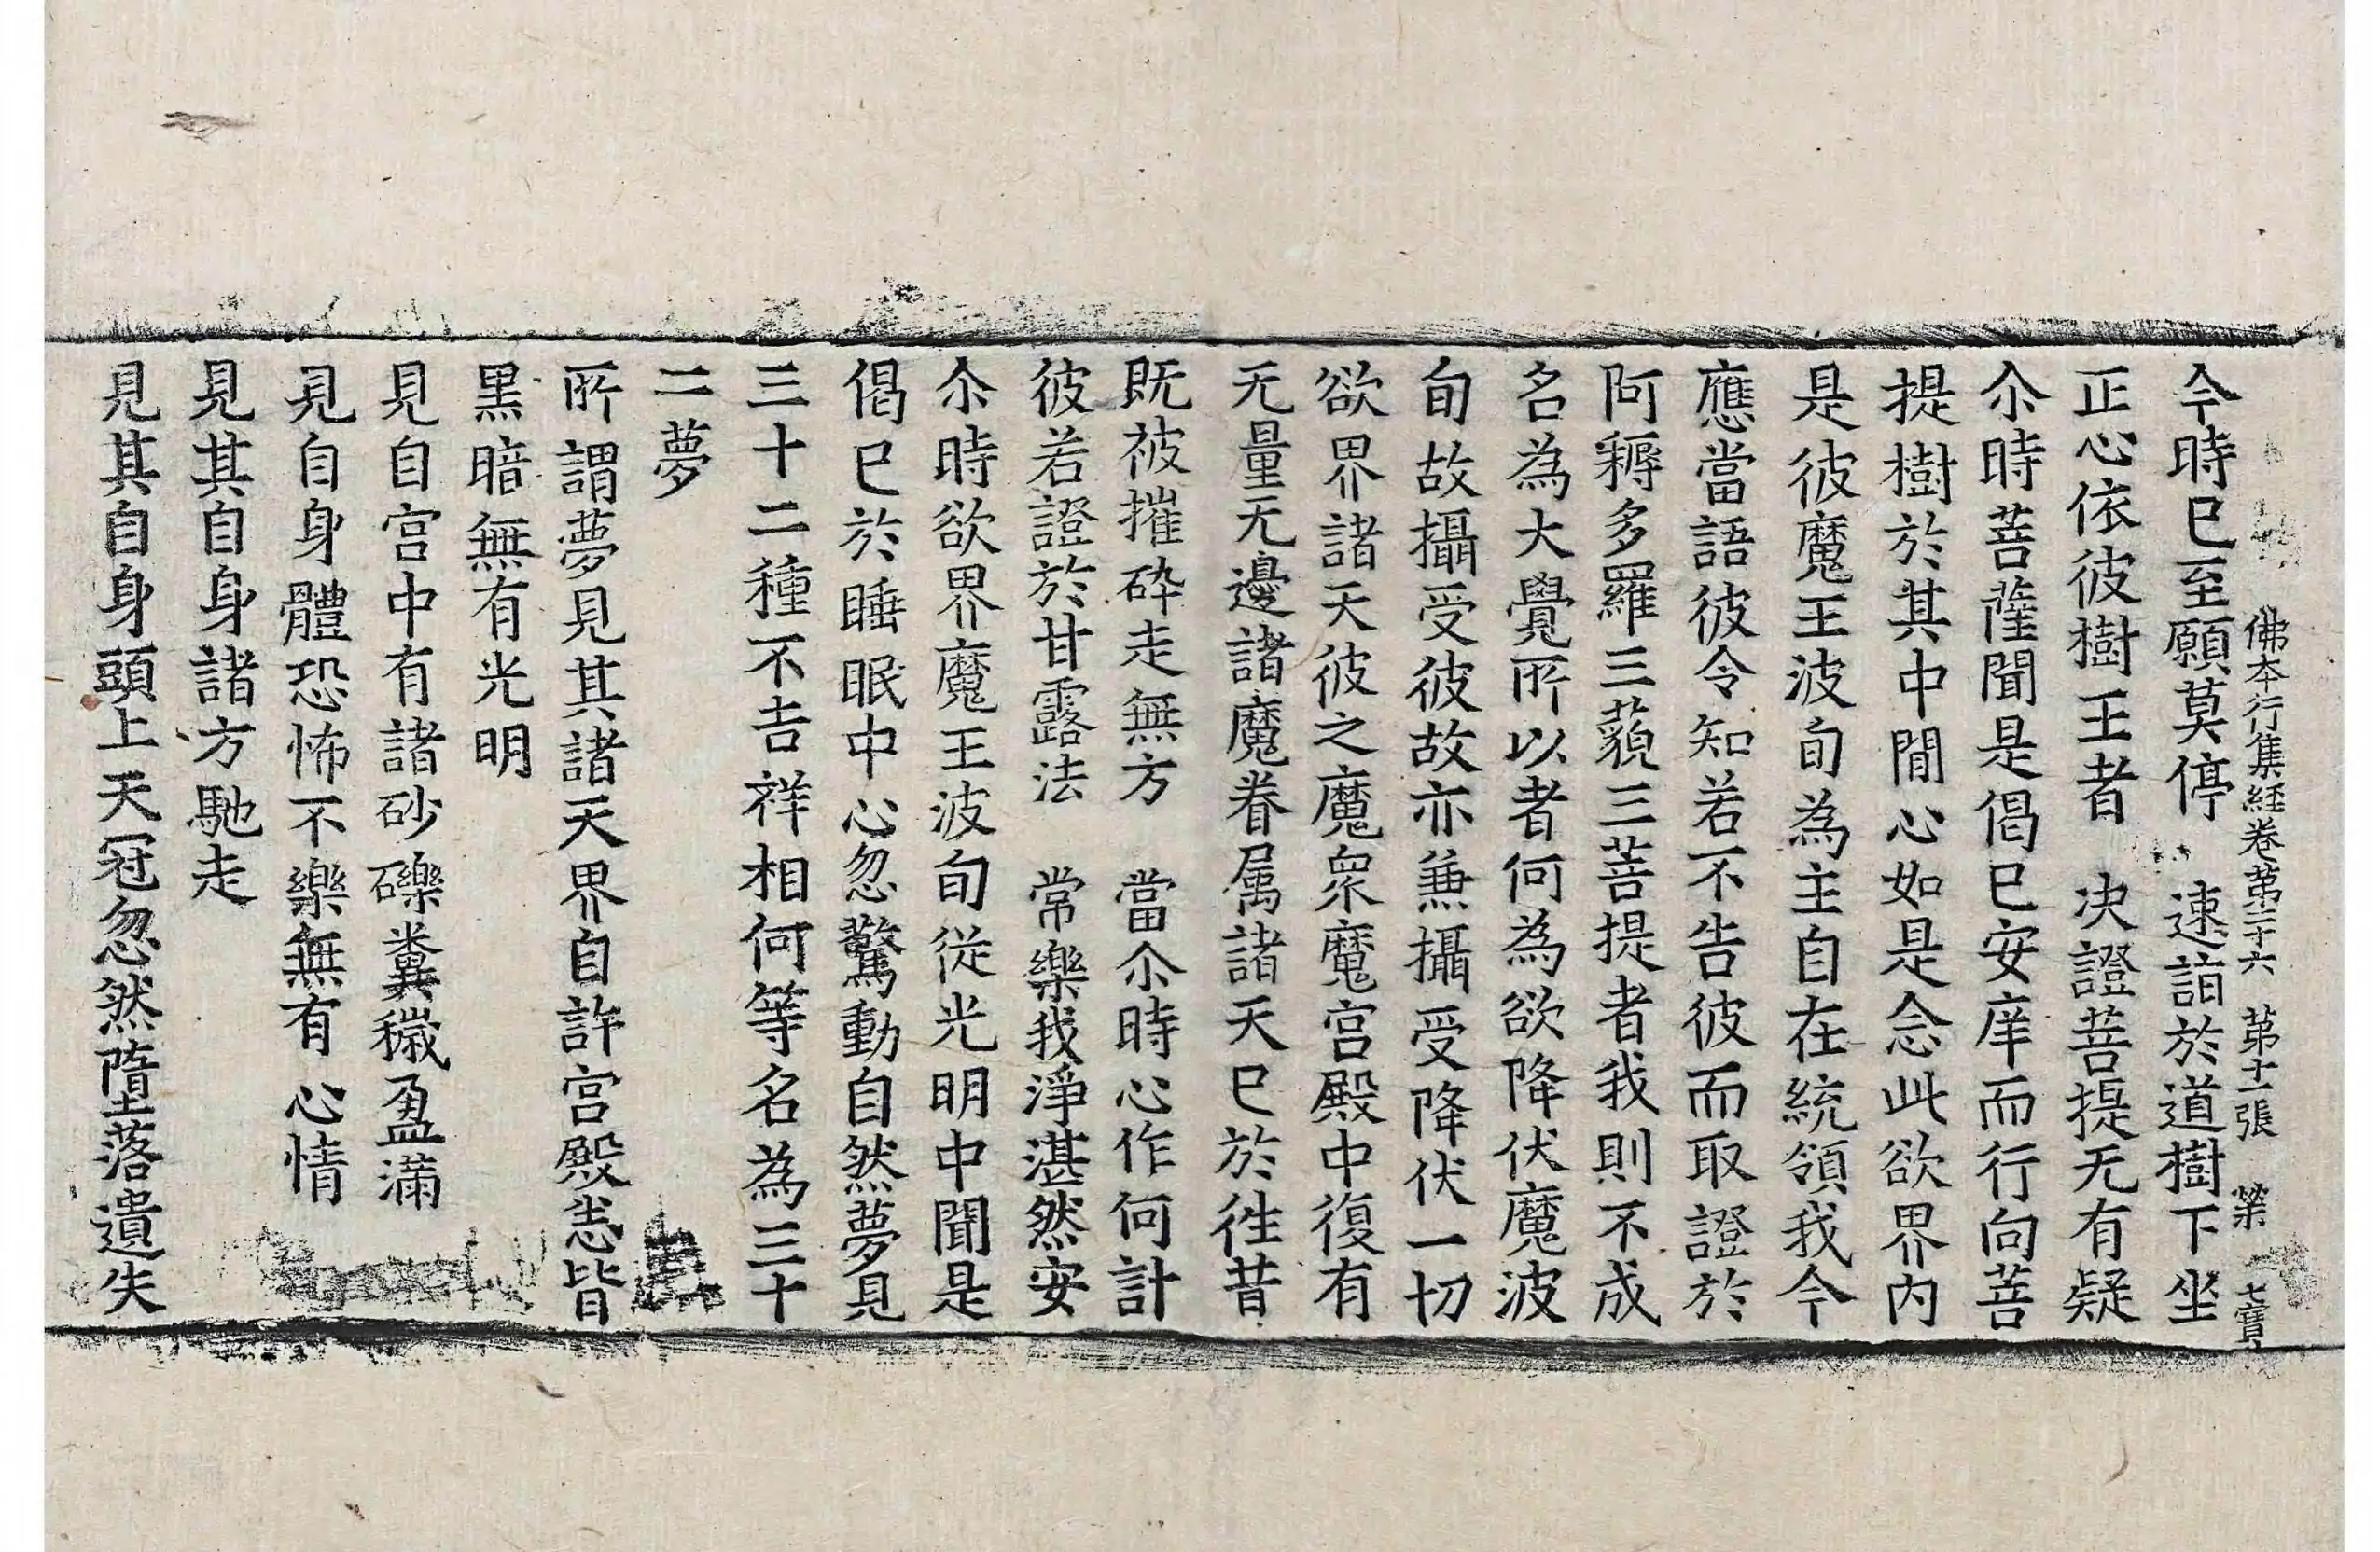 佛本行集經卷第二十六 第十一張 榮 七寶
今時已至願莫停 速詣於道樹下坐
正心依彼樹王者 決證菩提无有疑
尒時菩薩聞是偈已安庠而行向菩
提樹於其中閒心如是念此欲界內
是彼魔王波旬為主自在統領我今
應當語彼令知若不告彼而取證於
阿耨多羅三藐三菩提者我則不成
名為大覺所以者何為欲降伏魔波
旬故攝受彼故亦兼攝受降伏一切
欲界諸天彼之魔眾魔宮殿中復有
无量无邊諸魔眷属諸天已於往昔
既被摧碎走無方 當尒時心作何計
彼若證於甘露法 常樂我淨湛然安
尒時欲界魔王波旬從光明中聞是
偈已於睡眠中心忽驚動自然夢見
三十二種不吉祥相何等名為三十
二夢
所謂夢見其諸天界自許宮殿悉皆
黑暗無有光明
見自宮中有諸砂礫糞穢盈滿
見自身體恐怖不樂無有心情
見其自身諸方馳走
見其自身頭上天冠忽然墮落遺失